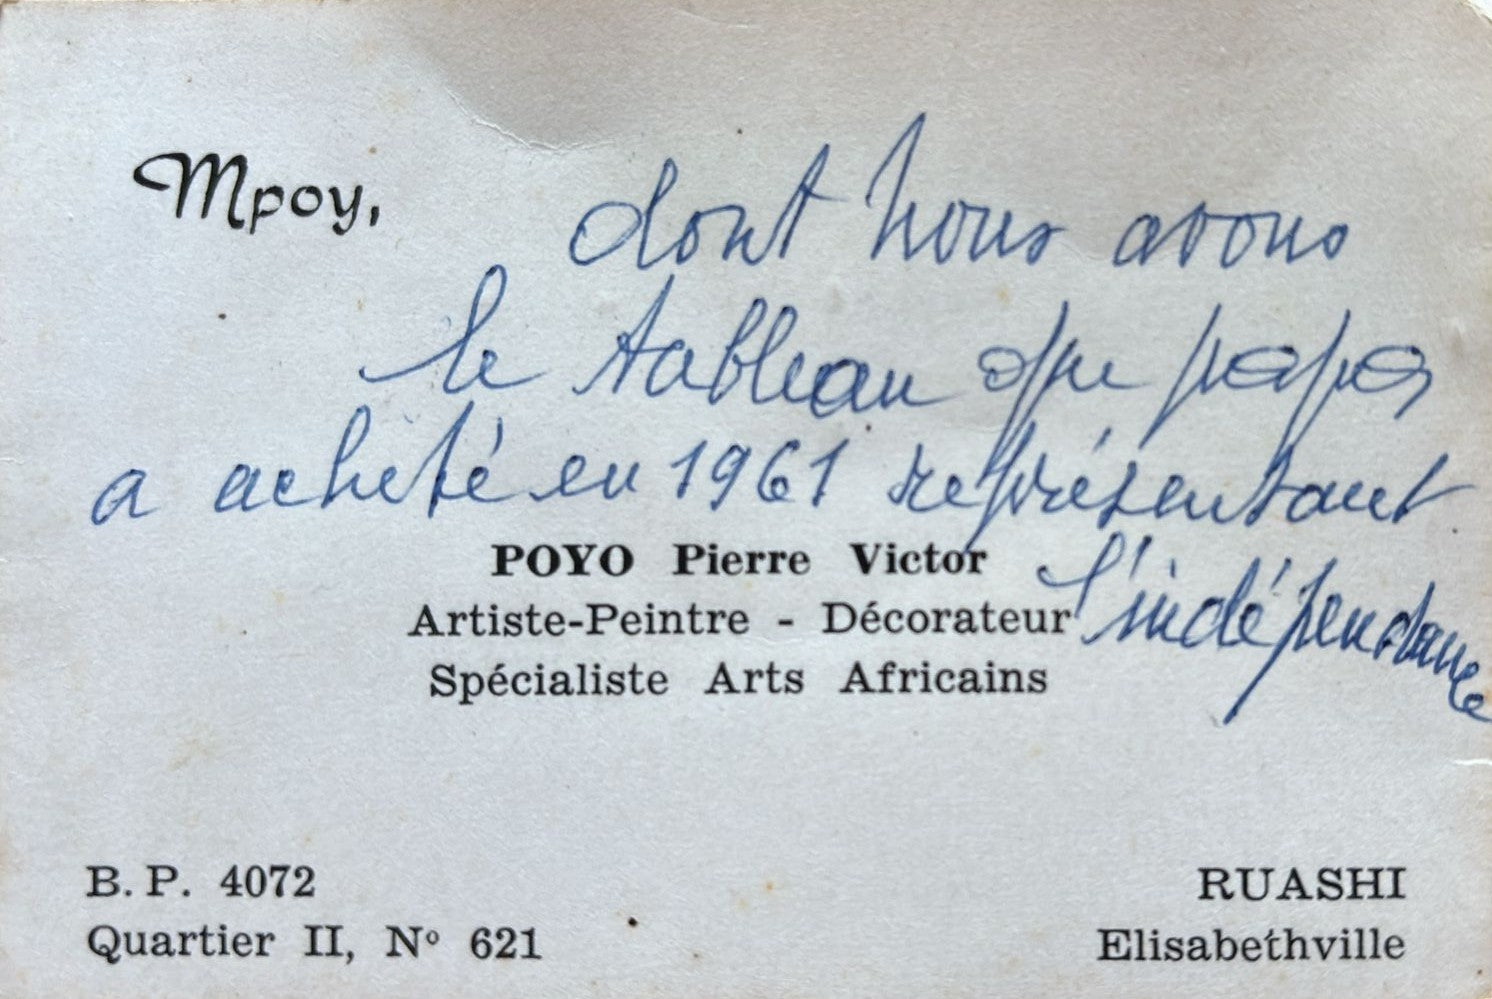 Mpoy, dont nous avons
le tableau que papa
a acheté en 1961 représentant
l'indépendance
POYO Pierre Victor
Artiste-Peintre - Décorateur
Spécialiste Arts Africains
B. P. 4072
Quartier II, Nº 621
RUASHI
Elisabethville